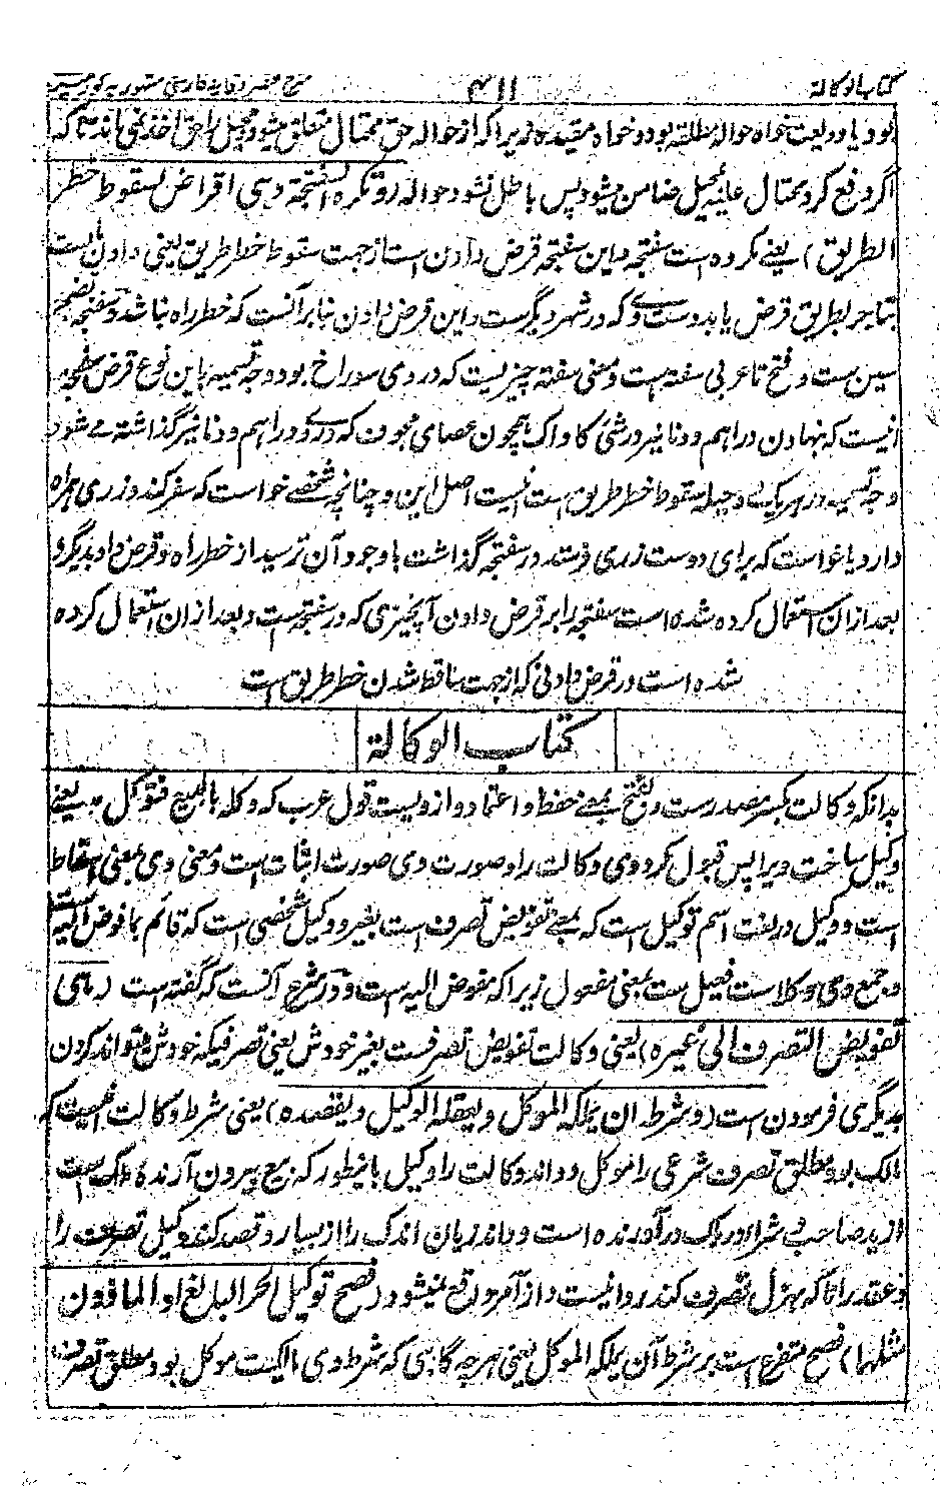 کتاب الوکالة ۴۱۱ شرح مختصر وقایه فارسی مشهور به کور میر
بود یا ودیعت خواه حواله مطلقه بود و خواه مقیده زیرا که از حواله حق محتال متعلق میشود و محیل را حق اخذ نمی ماند تا که
اگر دفع کرد محتال علیه محیل ضامن میشود پس باطل نشود حواله (وتکره السفتجة وهی اقراض لسقوط خطر
الطریق) یعنے مکروه است سفتجه و این سفتجه قرض دادن است از جهت سقوط خطر طریق یعنی دادن مالیست
بتاجر بطریق قرض یا بدوستے که در شهر دیگرست و این قرض دادن بنابر آنست که خطر راه نباشد و سفتجه بضم
سین ست و فتح تا عربی سفته است و معنی سفته چیزیست که در وی سوراخ بود و وجه تسمیه باین نوع قرض سفتجه
انیست که نهادن دراهم و دنانیر در شئ کاواک همچون عصای مجوف که در وے دراهم و دنانیر گذاشته مے شود
وجه تسمیه در هر یکے وحیله سقوط خطر طریق است انیست اصل این و چنانچه شخصے خواست که سفر کند و زری همراه
دارد یا خواست که برای دوست زری فرستد در سفتجه گذاشت باوجود آن ترسید از خطر راه و قرض داد بدیگرو
بعد ازان استعمال کرده شده است سفتجه را بر قرض دادن آنچیزی که در سفتجه است و بعد ازان استعمال کرده
شده است در قرض دادنی که از جهت ساقط شدن خطر طریق است
کتاب الوکالة
بدانکه وکالت بکسر مصدرست و بفتح بمعنے حفظ و اعتماد و ازوست قول عرب که وکله بالبیع فتوکل به یعنے
وکیل ساخت ویرا پس قبول کرد وی وکالت را و صورت وی صورت اثبات است و معنی وی بمعنی اسقاط
است و وکیل در لغت اسم توکیل است که بمعنے تفویض تصرف است بغیر و وکیل شخصی است که قائم بما فوض الیه است
و جمع وی وکلا ست فعیل ست بمعنی مفعول زیرا که مفوض الیه است و در شرع آنست که گفته است (هی
تفویض التصرف الی غیره) یعنی وکالت تفویض تصرفست بغیر خودش یعنی تصرفیکه خودش میتواند کردن
بدیگری فرمودن است (وشرطه ان یملکه الموکل ویعقله الوکیل ویقصده) یعنی شرط وکالت انیست که
مالک بود مطلق تصرف شرعی را موکل و داند وکالت را وکیل باینطور که بیع بیرون آرنده ملک است
از ید صاحب وے شرا در ملک درآورنده است و داند زیان اندک را از بسیار و قصد کند وکیل تصرف را
و عقد را تا که بهزل تصرف کند روا نیست و از آمر واقع نمیشود (فصح توکیل الحر البالغ او الماذون
مثلهما) فصح متفرع است بر شرط آن یملکه الموکل یعنی هرچه گاهی که شرط وی مالکیت موکل بود مطلق تصرف را